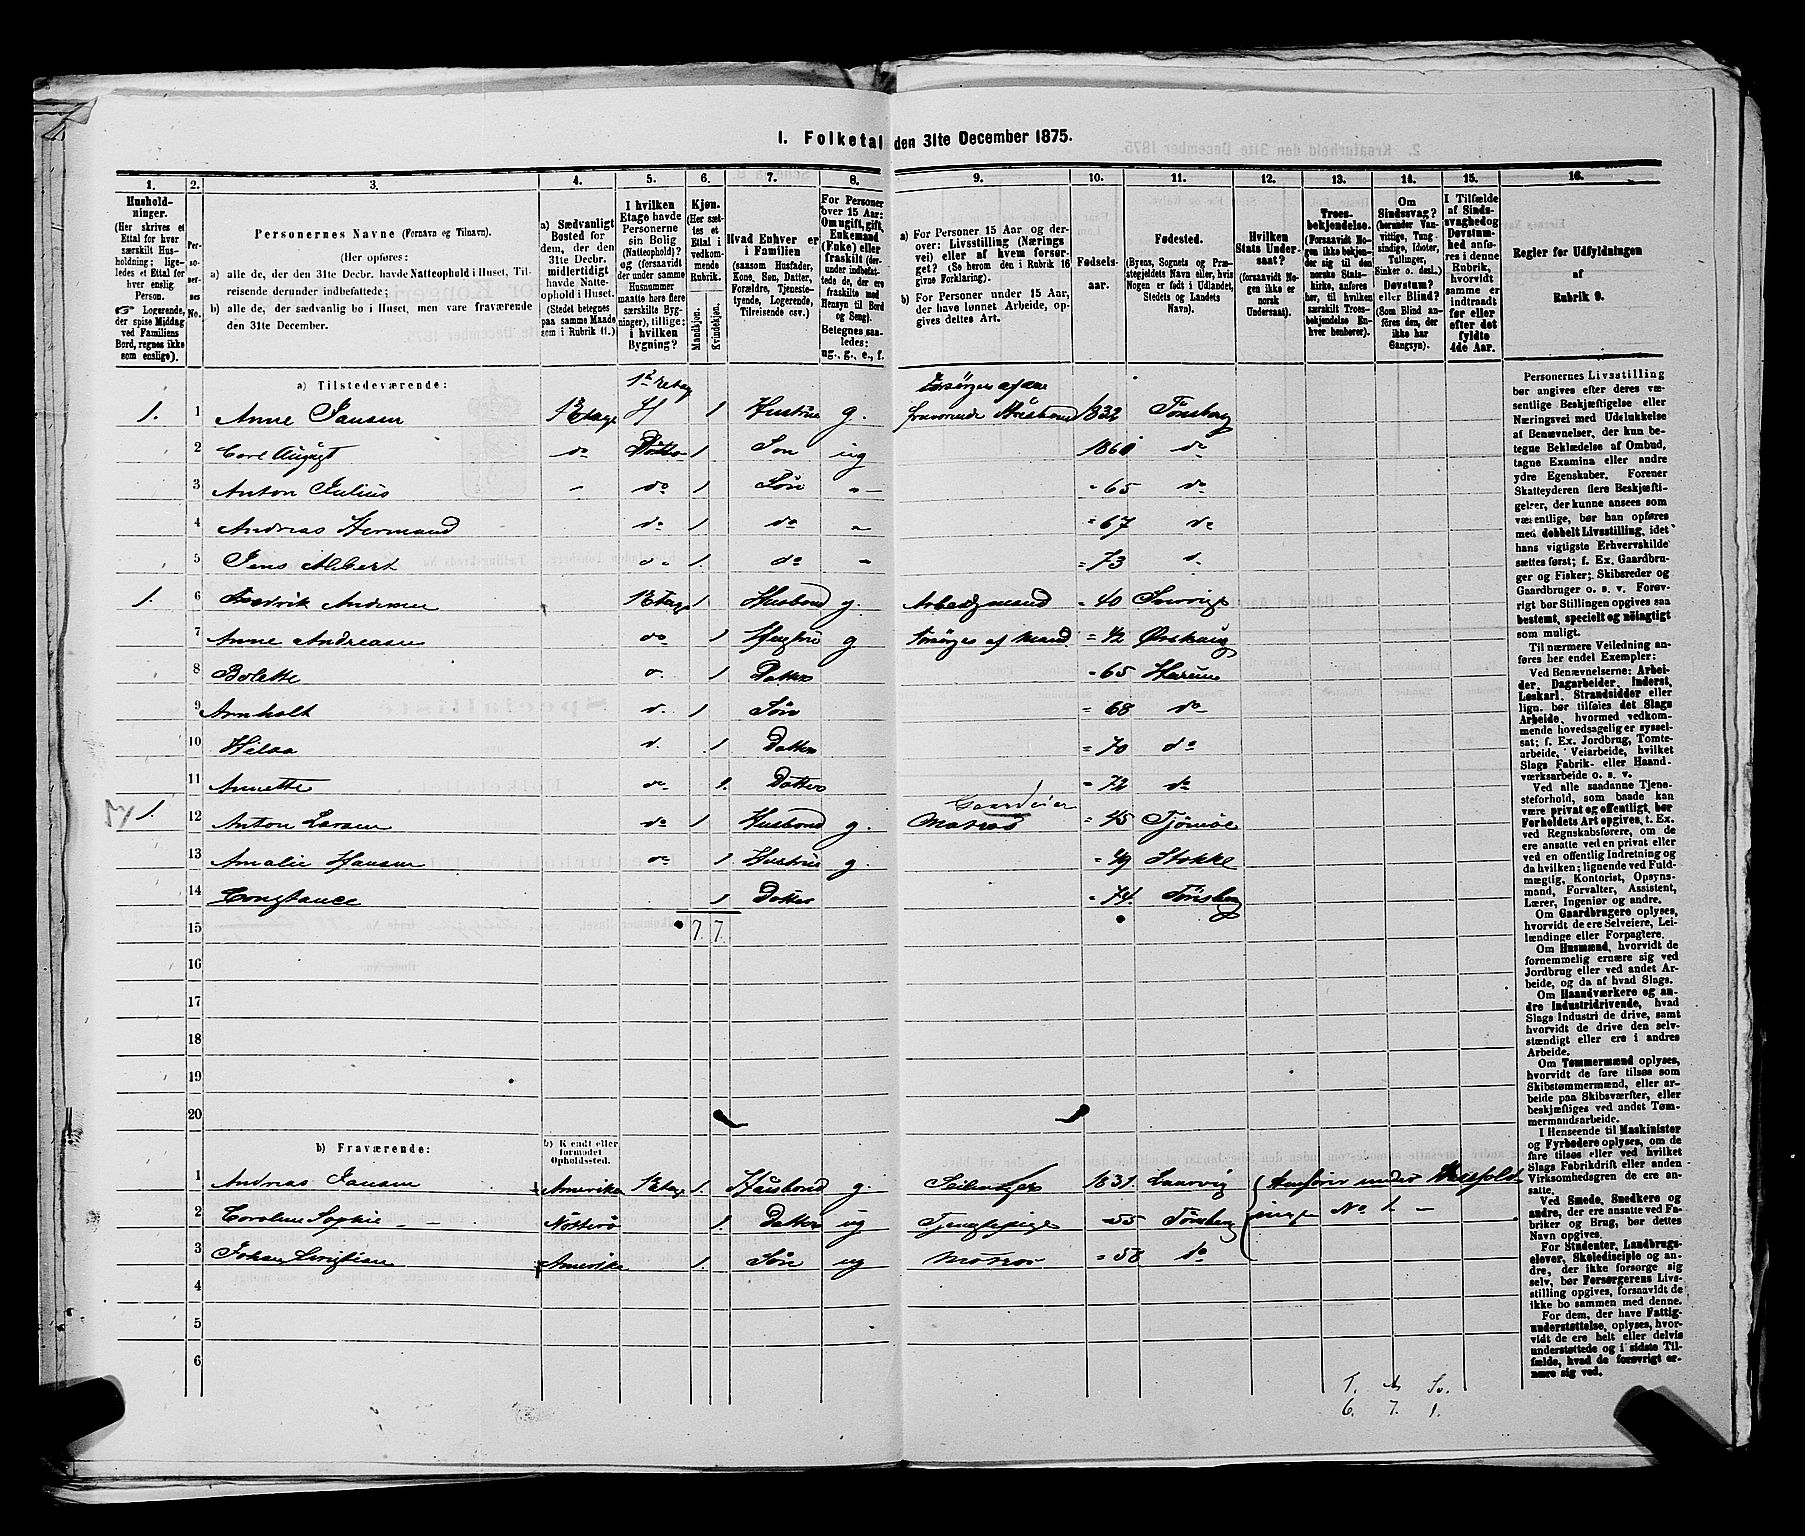 I. Folketal den 31te December 1875.
1. 2. 3. 4. 5. 6. 7. 8. 9. 10. 11. 12. 13. 14. 15. 16.
Hushold-
ninger.
(Her skrives et
Ettal for hver
særskilt Hus-
holdning; lige-
ledes et Ettal for
hver enslig
Person.
☞ Logerende,
der spise Middag
ved Familiens
Bord, regnes ikke
som enslige).
Per-
so-
ner-
nes
No.
Personernes Navne (Fornavn og Tilnavn).
(Her opføres:
a) alle de, der den 31te Decbr. havde Natteophold i Huset, Til-
reisende derunder indbefattede;
b) alle de, der sædvanlig bo i Huset, men vare fraværende
den 31te December.
a) Sædvanligt
Bosted for
dem, der den
31te Decbr.
midlertidigt
havde Natte-
ophold i Huset.
(Stedet betegnes
paa samme Maade
som i Rubrik 11.)
I hvilken
Etage havde
Personerne
sin Bolig
(Natteophold)?
og (forsaavidt
der under samme
Husnummer
maatte høre flere
særskilte Byg-
ninger), tillige:
i hvilken
Bygning?
Kjøn.
(Her sæt-
tes et
Ettal i
vedkom-
mende
Rubrik.
Mandkjøn.
Kvindekjøn.
Hvad Enhver er
i Familien
(saasom Husfader,
Kone, Søn, Datter,
Forældre, Tjeneste-
tyende, Logerende,
Tilreisende osv.)
For Personer
over 15 Aar:
Om ugift, gift,
Enkemand
(Enke) eller
fraskilt (der-
under indbefat-
tede de, der ere
fraskilte med
Hensyn til Bord
og Seng)
Betegnes saa-
ledes:
ug., g., e., f.
a) For Personer 15 Aar og der-
over: Livsstilling (Nærings
vei) eller af hvem forsør-
get? (Se herom den i Rubrik 16
givne Forklaring).
b) For Personer under 15 Aar,
der have lønnet Arbeide, op-
gives dettes Art.
Fødsels-
aar.
Fødested.
(Byens, Sognets og Præ-
stegjeldets Navn eller, hvis
Nogen er født i Udlandet,
Stedets og Landets
Navn).
Hvilken
Stats Under-
saat?
(forsaavidt No-
gen ikke er
norsk
Undersaat).
Troes-
bekjendelse.
(Forsaavidt No-
gen ikke bekjen-
der sig til den
norske Stats-
kirke, anføres
her, til hvilken
særskilt Troes-
bekjendelse En-
hver henhører).
Om
Sindssvag?
(herunder Van-
vittige, Tung
sindige, Idioter,
Tullinger,
Sinker o. desl.)
Døvstum?
eller Blind?
(Som Blind an-
føres den, der
ikke har
Gangsyn).
I Tilfælde
af Sinds-
svaghed og
Døvstum-
hed anfø-
res i denne
Rubrik,
hvorvidt
samme er
indtraadt
før eller
efter det
fyldte
4de Aar.
Regler for Udfyldningen
af
Rubrik 9.
a) Tilstedeværende:
1. 1 Anne Jansen 1 Etage H 1 Hustru g. forsørges af den fraværende Husbond 1832 Tønsberg
2 Carl August do 1 Søn ug 1860 do
3 Anton Julius do 1 Søn " 65 do
4 Andreas Hermand do 1 do " 67 do
5 Jens Albert do 1. do " 73 do
1. 6 Fredrik Andersen 1 Etage 1 Husbond g. Arbeidsmand " 40
7 Anne Andreasen do 1 Hustru g forsørges af Mand " 42 Ørskoug
8 Bolette 1 Datter " 65 Harum
9 Arnholt 1 Søn " 68 do
10 Hilda 1 Datter " 70 do
11 Annette do 1. Datter " 72 do
1. 12 Anton Larsen do 1 Husbond g. Gaardeier Matros " 45 Tjømøe
13 Amalie Hansen do 1. Hustru g. " 49 Stokke
14 Constance 1 Datter " 74. Tønsberg
15 7. 7.
16
17
18
19
20
b) Fraværende:
b) Kjendt eller
formodet
Opholdssted.
1 Andreas Jansen Amerika 1 Etage 1. Husbond g. 1831. Laurvig Anføres under Hushold-
2 Caroline Sophie Nøtterø 1. Datter ug Tjenestepige " 55 Tønsberg No 1.
3 Johan Christian Amerika 1. Søn ug Matros " 58 do
4
5
6
T. A Sv.
6. 7. 1.
Personernes Livsstilling
bør angives efter deres væ-
sentlige Beskjæftigelse eller
Næringsvei med Udelukkelse
af Benævnelser, der kun be-
tegne Beklædelse af Ombud,
tagne Examina eller andre
ydre Egenskaber. Forener
Skatteyderen flere Beskjæfti-
gelser, der kunne ansees som
væsentlige, bør han opføres
med dobbelt Livsstilling, idet
hans vigtigste Erhvervskilde
sættes først; f. Ex. Gaardbru-
ger og Fisker; Skibsreder og
Gaardbruger o. s. v. Forøv-
rigt bør Stillingen opgives saa
bestemt, specielt og nøiagtigt
som muligt.
Til nærmere Veiledning an-
føres her endel Exempler:
Ved Benævnelserne: Arbei-
der, Dagarbeider, Inderst,
Løskarl, Strandsidder eller
lign. bør tilføies det Slags
Arbeide, hvormed vedkom-
mende hovedsagelig er syssel-
sat; f. Ex. Jordbrug, Tomte-
arbeide, Veiarbeide, hvilket
Slags Fabrik- eller Haand-
værksarbeide o. s. v.
Ved alle saadanne Tjene-
steforhold, som baade kan
være privat og offentligt, bør
Forholdets Art opgives, t. Ex.
ved Regnskabsførere, om de
ere ansatte ved en privat eller
ved en offentlig Indretning og
da hvilken; lignende ved Fuld-
mægtig, Kontorist, Opsyns-
mand, Forvalter, Assistent,
Lærer, Ingeniør og andre.
Om Gaardbrugere oplyses,
hvorvidt de ere Selveiere, Lei-
lændinge eller Forpagtere.
Om Husmænd, hvorvidt de
fornemmelig ernære sig ved
Jordbrug eller ved andet Ar-
beide, og da af hvad Slags.
Om Haandværkere og an-
dre Industridrivende, hvad
Slags Industri de drive, samt
hvorvidt de drive den selv-
stændigt eller ere i andres
Arbeide.
Om Tømmermænd oplyses,
hvorvidt de fare tilsøs som
Skibstømmermænd, eller ar-
beide paa Skibsværfter, eller
beskjæftiges ved andet Tøm-
mermandsarbeide.
I Henseende til Maskinister
og Fyrbødere oplyses, om de
fare tilsøs eller ved hvilket
Slags Fabrikdrift eller anden
Virksomhedsgren de ere an-
satte.
Ved Smede, Snedkere og
andre, der ere ansatte ved Fa-
briker og Brug, bør dettes
Navn opgives.
For Studenter, Landbrugs-
elever, Skoledisciple og an-
dre, der ikke forsørge sig
selv, bør Forsørgerens Livs-
stilling opgives, forsaavidt de
ikke bo sammen med denne.
For dem, der have Fattig-
understøttelse, oplyses, hvor-
vidt de ere helt eller delvis
understøttede og i sidste Til-
fælde, hvad de forøvrigt er-
nære sig ved.